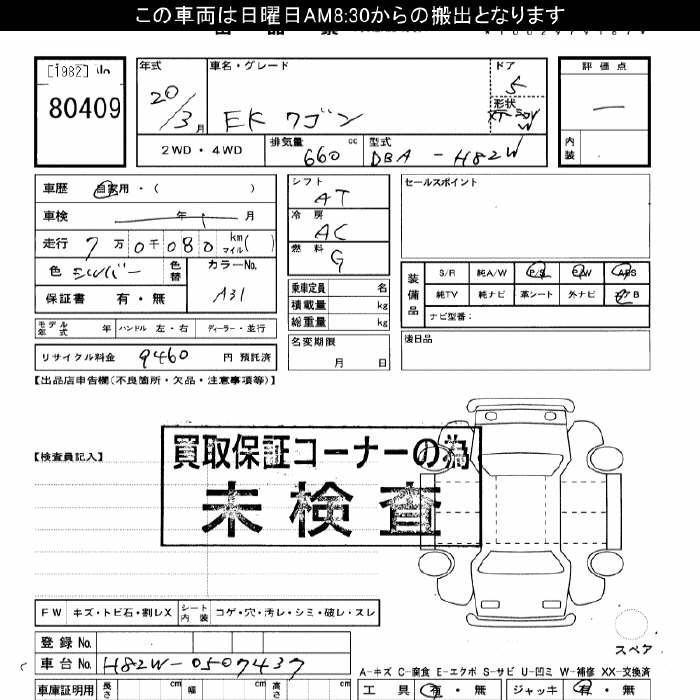 この車両は日曜日AM8:30からの搬出となります
[1982]
80409
年式
20/3月
車名・グレード
EK ワゴン
ドア
5
形状
評価点
内装
2WD・4WD
排気量 660 cc
型式 DBA-H82W
車歴 自家用・( )
車検 年 月
走行 7万0千080 km マイル( )
色 シルバー 色替
カラーNo. A31
保証書 有・無
シフト AT
冷房 AC
燃料 G
乗車定員 名
積載量 kg
総重量 kg
名変期限 月 日
セールスポイント
装備品
S/R 純A/W P/S P/W ABS
純TV 純ナビ 革シート 外ナビ エアB
ナビ型番:
後日品
モデル年式 年 ハンドル 左・右 ディーラー・並行
リサイクル料金 9460 円 預託済
【出品店申告欄(不良箇所・欠品・注意事項等)】
【検査員記入】
買取保証コーナーの為
未検査
FW キズ・トビ石・割レX シート内装 コゲ・穴・汚レ・シミ・破レ・スレ
スペア
登録 No.
車台 No. H82W-0507437
A-キズ C-腐食 E-エクボ S-サビ U-凹ミ W-補修 XX-交換済
車庫証明用 長さ cm 幅 cm 高さ cm
工具 有・無 ジャッキ 有・無